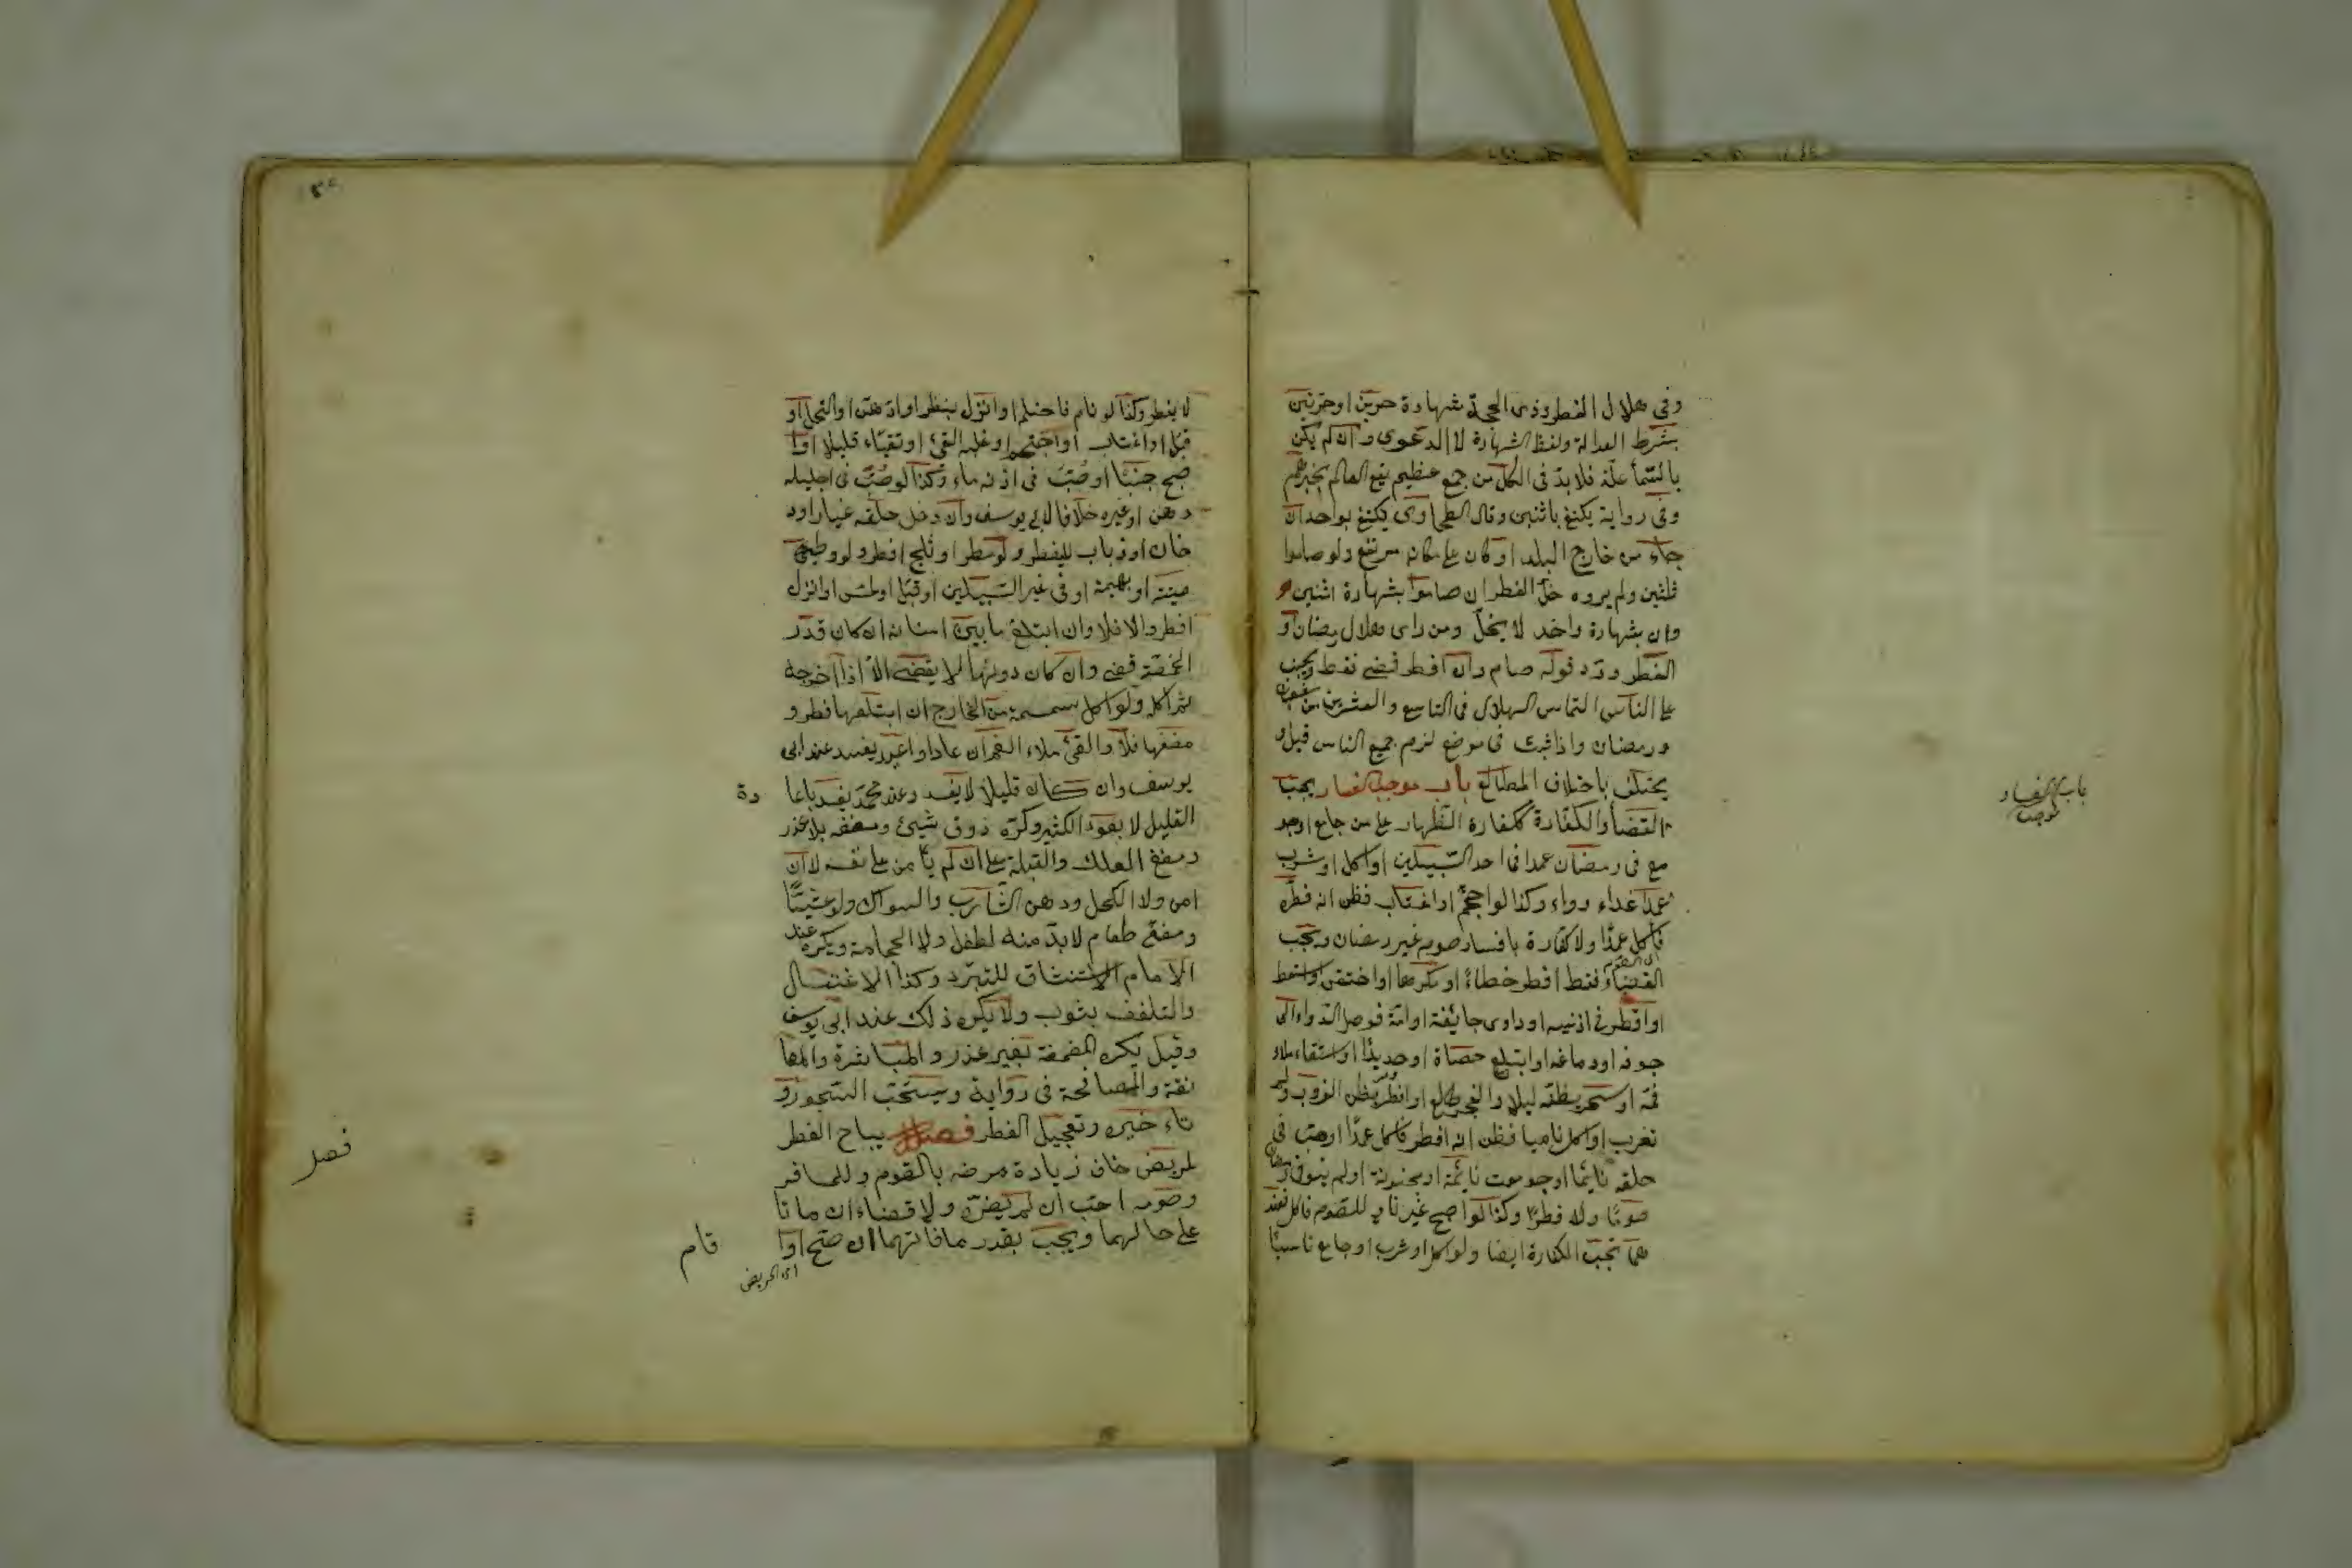 وفى هلال الفطر وذى الحجة شهادة حرين او حر وحرتين
بشرط العدالة ولفظ الشهادة لا الدعوى وان لم يكن
بالسمأ علة فلا بد فى الكل من جمع عظيم يقع العلم بخبرهم
وفى رواية يكتفى باثنين وقال الطحاوى يكتفى بواحد ان
جاء من خارج البلد او كان على مكان مرتفع ولو صاموا
ثلثين ولم يروه حل الفطر ان صاموا بشهادة اثنين و
وان بشهادة واحد لا يحل ومن راى هلال رمضان او
الفطر ورد قوله صام وان افطر قضى فقط ويجب
على الناس التماس الهلال فى التاسع والعشرين من شعبان
ورمضان واذا ثبت فى موضع لزم جميع الناس قيل و
يختلف باختلاف المطالع باب موجب الفساد يجب
القضأ والكفارة ككفارة الظهار على من جامع او جو
مع فى رمضان عمدا فى احد السبيلين او اكل او شرب
عمدا غذاء او دواء وكذا لو احتجم او اغتاب فظن انه فطره
فاكل عمدا ولا كفارة بافساد صوم غير رمضان ويجب
القضاء فقط لو افطر خطاء او مكرها او احتقن او استعط
او اقطر فى اذنيه او داوى جايفة او امة فوصل الدواء الى
جوفه او دماغه او ابتلع حصاة او حديدا او استقاء ملاء
فمه او تسحر يظنه ليلا والفجر طالع او افطر يظن الغروب ولم
تغرب او اكل ناسيا فظن انه افطر فاكل عمدا او صب فى
حلقه نايما او جومعت نايمة او مجنونة او لم ينو فى رمضان
صوما ولا فطرا وكذا لو اصبح غير ناو للصوم فاكل فعند
هما تجب الكفارة ايضا ولو اكل او شرب او جامع ناسيا
باب موجب الفساد
لا يفطر وكذا لو نام فاحتلم او انزل بنظر او ادهن او اكتحل او
قبل او اغتاب او احتجم او غلبه القئ او تقياء قليلا او ا
صبح جنبا او صب فى اذنه ماء وكذا لو صب فى احليله
دهن او غيره خلافا لابى يوسف وان دخل حلقه غبار او د
خان او ذباب لا يفطر ولو مطر او ثلج افطر ولو وطئ
ميتة او بهيمة او فى غير السبيلين او قبل او لمس او انزل
افطر والا فلا وان ابتلع ما بين اسنانه ان كان قدر
الحمصة قضى وان كان دونها لا يقضى الا اذا اخرجه
ثم اكله ولو اكل سمسمة من الخارج ان ابتلعها فطر و
مضغها فلا والقئ ملاء الفم ان عاد او اعيد يفسد عند ابى
يوسف وان كان قليلا لا يفسد وعند محمد يفسد باعا
دة
القليل لا بعود الكثير وكره ذوق شيئ ومضغه بلا عذر
ومضغ العلك والقبلة على ان لم يأمن على نفسه لا ان
امن ولا الكحل ودهن الشارب والسواك ولو عشيا
ومضغ طعام لا بد منه لطفل ولا الحجامة ويكره عند
الامام الاستنشاق للتبرد وكذا الاغتسال
والتلفف بثوب ولا يكره ذلك عند ابى يوسف
وقيل يكره المضمضة بغير عذر والمباشرة والمعا
نقة والمصافحة فى رواية ويستحب السحور و
تاء خيره وتعجيل الفطر فصل يباح الفطر
لمريض خاف زيادة مرضه بالصوم وللمسافر
وصومه احب ان لم يضره ولا قضاء ان ماتا
على حالهما ويجب بقدر ما فاتهما ان صح او ا
قام
اى المريض
فصل